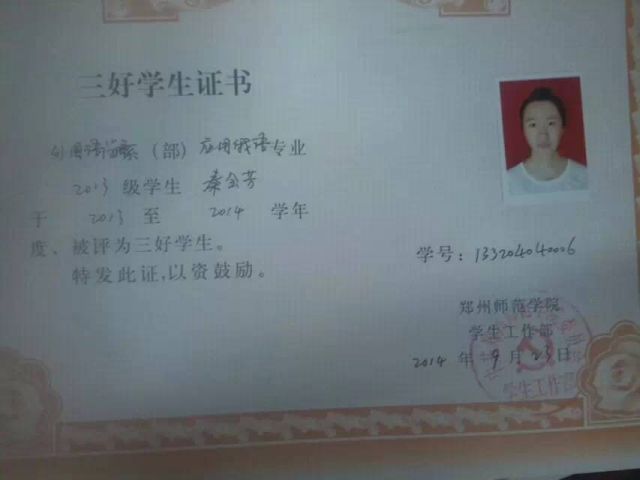 三好学生证书
外国语言系（部）应用俄语专业
2013 级学生 秦会芳
于 2013 至 2014 学年
度、被评为三好学生。
特发此证,以资鼓励。
学号：133204040006
郑州师范学院
学生工作部
2014 年 9 月 23 日
学生工作部